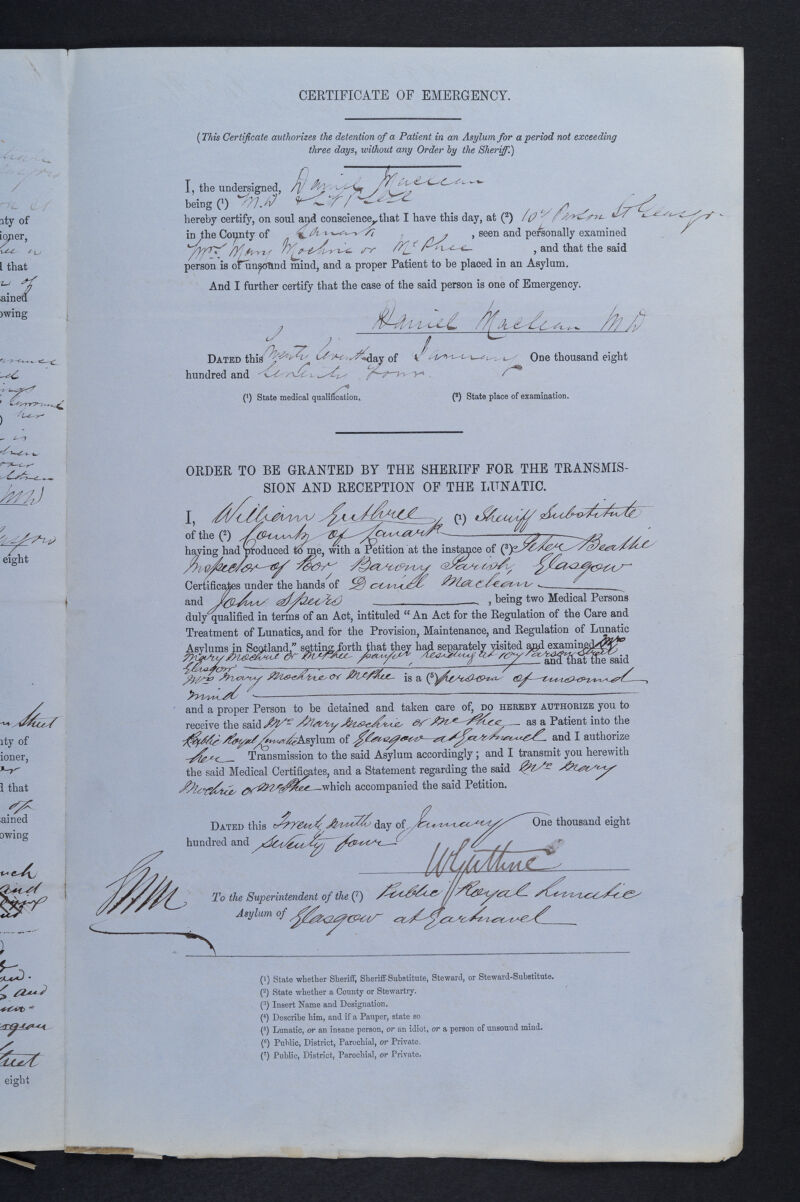 CERTIFICATE OF EMERGENCY.
(This Certificate authorizes the detention of a Patient in an Asylum for a period not exceeding
three days, without any Order by the Sheriff.)
I, the undersigned, Daniel Maclean
being (1) M.D
hereby certify, on soul and conscience, that I have this day, at (2) 107 Parson St Glasgow
in the County of Lanark , seen and personally examined
Mrs. Mary Mochrie or McPhee , and that the said
person is of unsound mind, and a proper Patient to be placed in an Asylum.
And I further certify that the case of the said person is one of Emergency.
Daniel Maclean MD
DATED this Twenty Seventh day of January One thousand eight
hundred and Seventy four.
(1) State medical qualification. (2) State place of examination.
ORDER TO BE GRANTED BY THE SHERIFF FOR THE TRANSMIS-
SION AND RECEPTION OF THE LUNATIC.
I, William Guthrie (1) Sheriff Substitute
of the (2) County of Lanark
having had produced to me, with a Petition at the instance of (3) Peter Beattie
Inspector of Poor, Barony Parish, Glasgow
Certificates under the hands of Daniel Maclean
and John Speirs , being two Medical Persons
duly qualified in terms of an Act, intituled "An Act for the Regulation of the Care and
Treatment of Lunatics, and for the Provision, Maintenance, and Regulation of Lunatic
Asylums in Scotland," setting forth that they had separately visited and examined Mrs
Mary Mochrie or McPhee pauper, residing at 107 Parson Street
Glasgow and that the said
Mrs Mary Mochrie or McPhee is a (5) person of unsound
mind
and a proper Person to be detained and taken care of, DO HEREBY AUTHORIZE you to
receive the said Mrs Mary Mochrie or McPhee as a Patient into the
Public Royal Lunatic Asylum of Glasgow at Gartnavel and I authorize
her Transmission to the said Asylum accordingly; and I transmit you herewith
the said Medical Certificates, and a Statement regarding the said Mrs Mary
Mochrie or McPhee which accompanied the said Petition.
DATED this Twenty Ninth day of January One thousand eight
hundred and Seventy four
WGuthrie
To the Superintendent of the (7) Public Royal Lunatic
Asylum of Glasgow at Gartnavel
(1) State whether Sheriff, Sheriff-Substitute, Steward, or Steward-Substitute.
(2) State whether a County or Stewartry.
(3) Insert Name and Designation.
(4) Describe him, and if a Pauper, state so
(5) Lunatic, or an insane person, or an idiot, or a person of unsound mind.
(6) Public, District, Parochial, or Private.
(7) Public, District, Parochial, or Private.